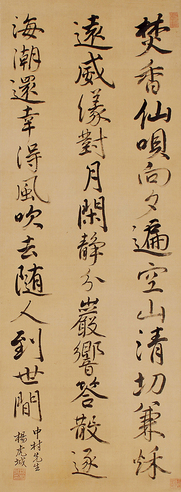 焚香仙唄向夕遍空山清切兼秋
遠威儀對月閑靜分巖響答散逐
海潮還幸得風吹去随人到世間
中村先生
楊虎城